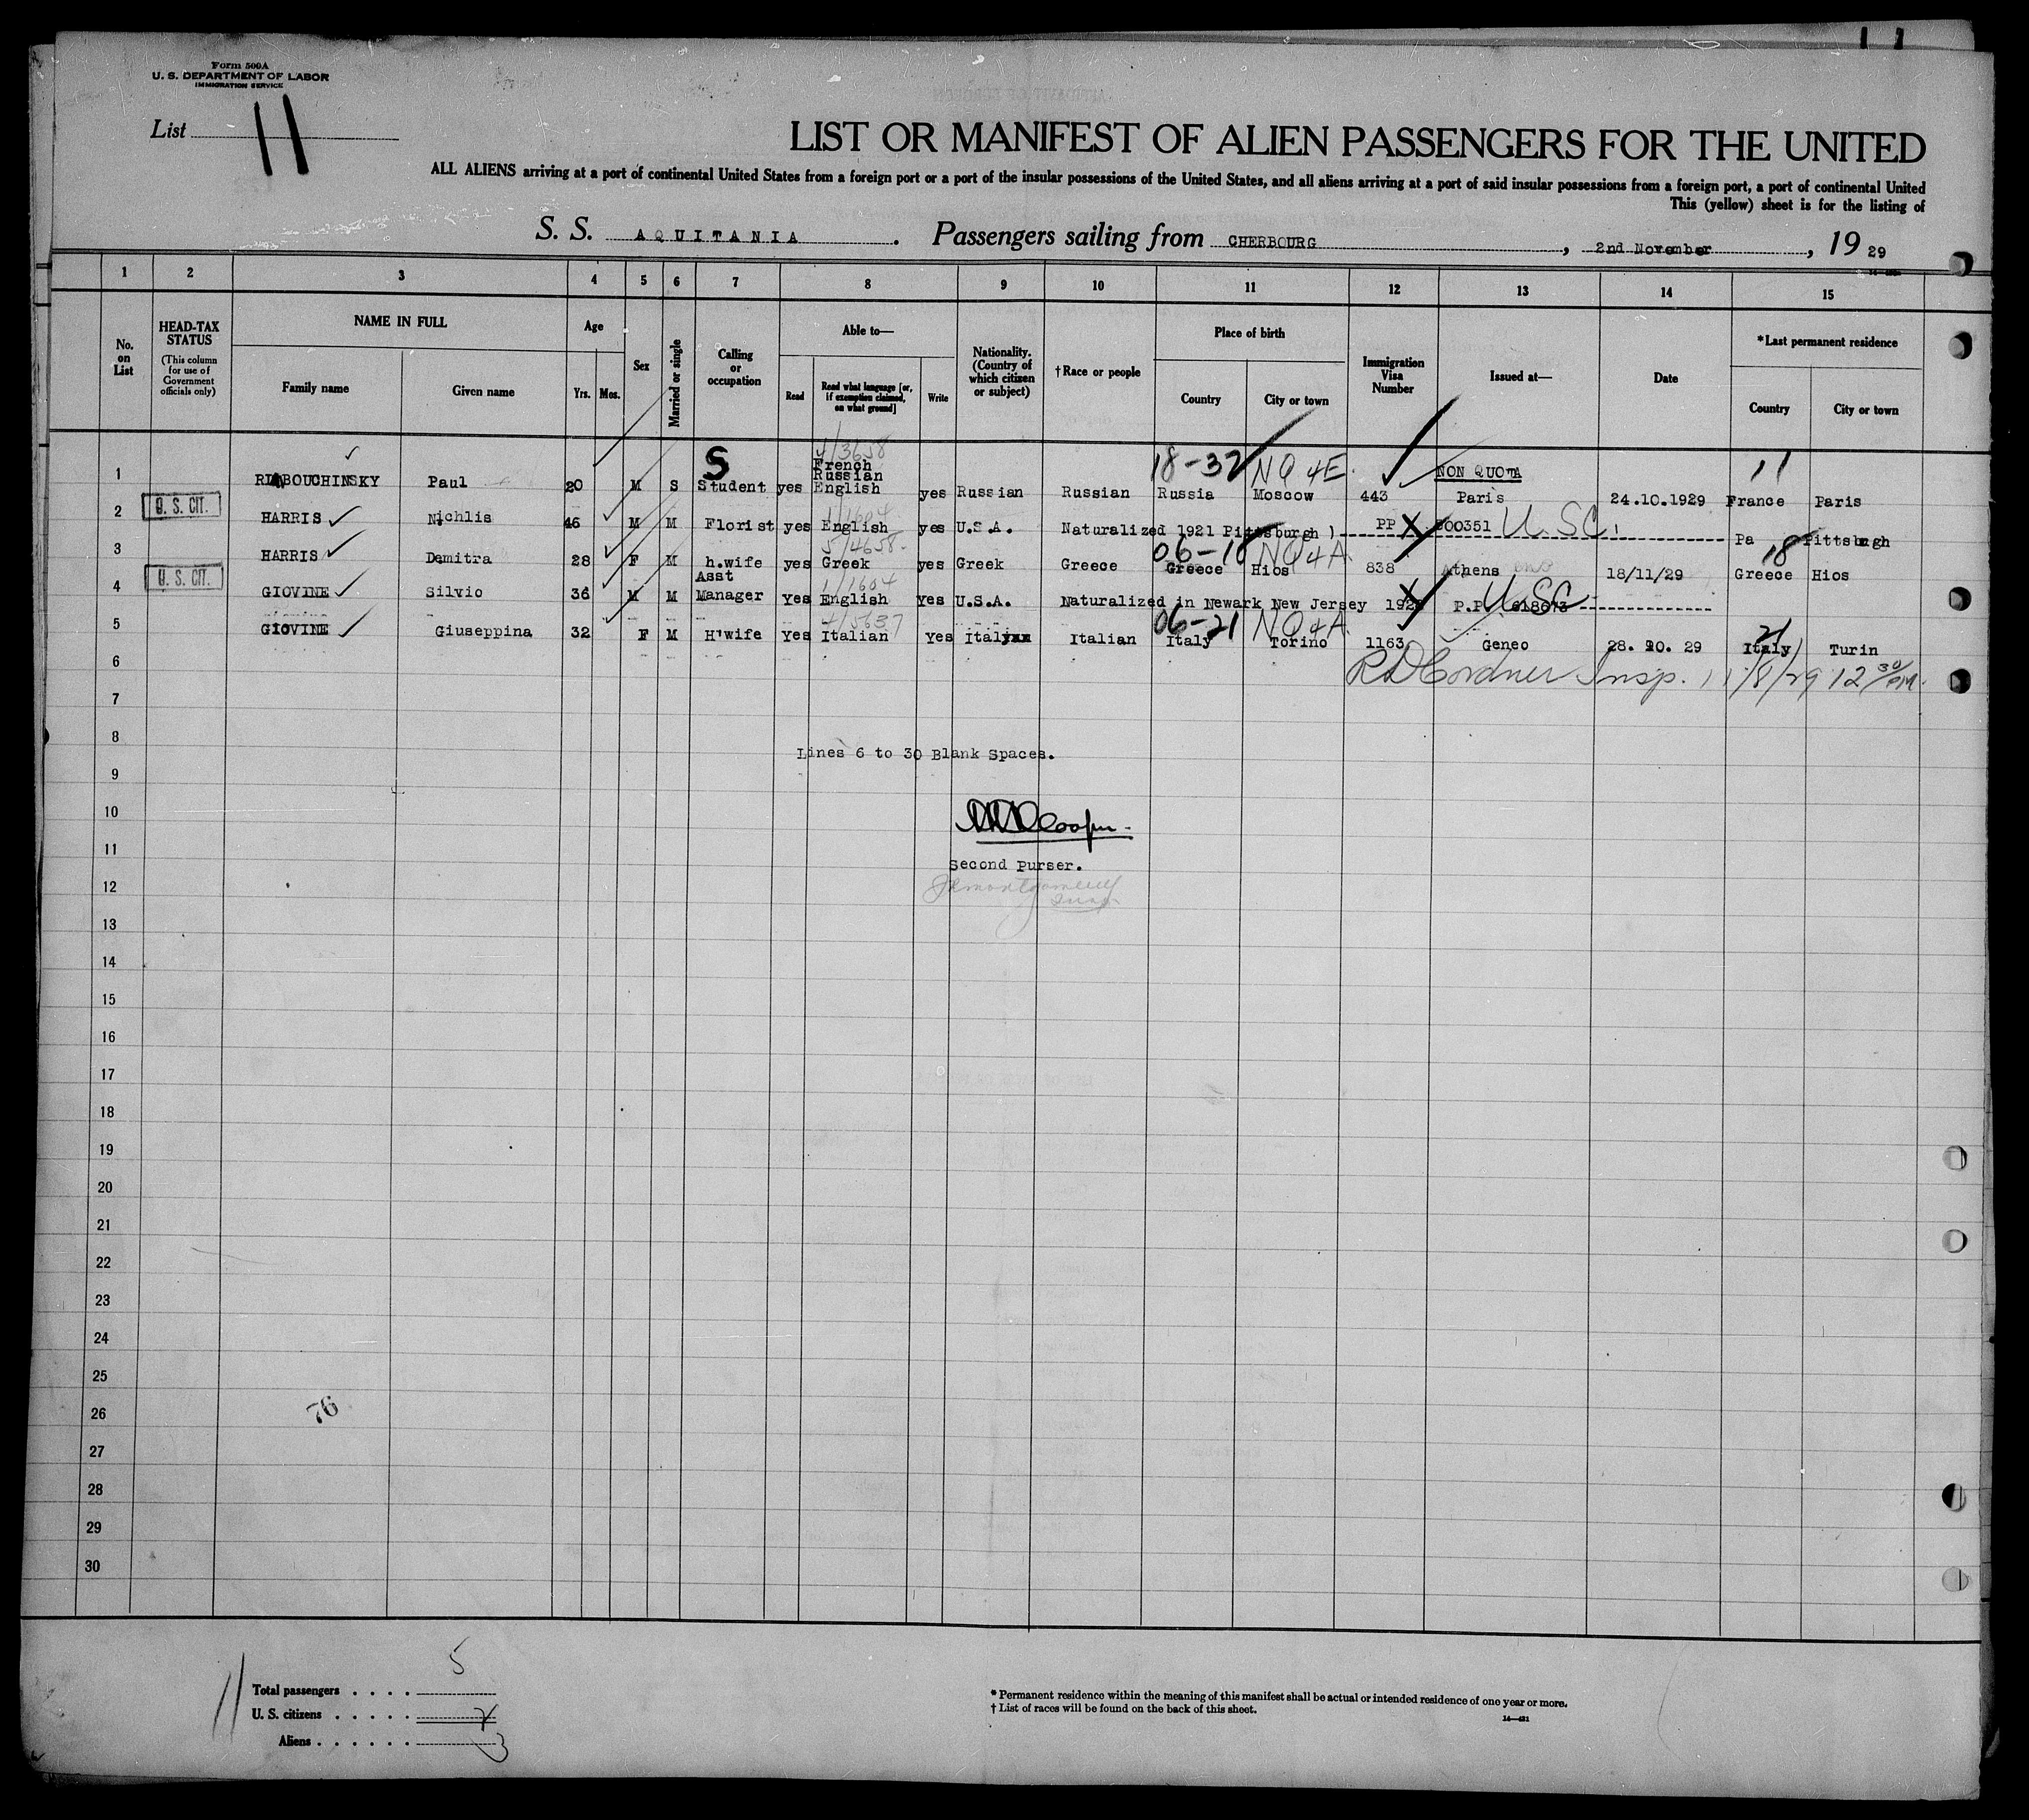 11
Form 500A
U. S. DEPARTMENT OF LABOR
IMMIGRATION SERVICE
List 11
LIST OR MANIFEST OF ALIEN PASSENGERS FOR THE UNITED
ALL ALIENS arriving at a port of continental United States from a foreign port or a port of the insular possessions of the United States, and all aliens arriving at a port of said insular possessions from a foreign port, a port of continental United
This (yellow) sheet is for the listing of
S. S. AQUITANIA . Passengers sailing from CHERBOURG , 2nd November , 19 29
1 2 3 4 5 6 7 8 9 10 11 12 13 14 15
No. on List
HEAD-TAX STATUS (This column for use of Government officials only)
NAME IN FULL
Family name Given name
Age
Yrs. Mos.
Sex
Married or single
Calling or occupation
Able to—
Read Read what language [or, if exemption claimed, on what ground] Write
Nationality. (Country of which citizen or subject)
†Race or people
Place of birth
Country City or town
Immigration Visa Number
Issued at—
Date
*Last permanent residence
Country City or town
S 4/3658 18-32 NQ 4E. NON QUOTA 11
1 RIABOUCHINSKY Paul 20 M S Student yes French Russian English yes Russian Russian Russia Moscow 443 Paris 24.10.1929 France Paris
1/1604
2 U. S. CIT. HARRIS Nichlis 46 M M Florist yes English yes U.S.A. Naturalized 1921 Pittsburgh ) PP 500351 U.S.C. Pa Pittsburgh
5/4658- 06-18 NQ 4A 18
3 HARRIS Demitra 28 F M h.wife yes Greek yes Greek Greece Greece Hios 838 Athens 18/11/29 Greece Hios
1/1604
4 U. S. CIT. GIOVINE Silvio 36 M M Asst Manager Yes English Yes U.S.A. Naturalized in Newark New Jersey 192 P.P. 618673 U.S.C.
4/5637 06-21 NQ 4A 21
5 GIOVINE Giuseppina 32 F M H'wife Yes Italian Yes Italy Italian Italy Torino 1163 Geneo 28. 10. 29 Italy Turin
6
R D Cordner Insp. 11/8/29 12 30/PM.
7
8
Lines 6 to 30 Blank Spaces.
9
10
Cooper.
11
Second Purser.
12
Montgomery
Insp
13
14
15
16
17
18
19
20
21
22
23
24
25
26
76
27
28
29
30
11
Total passengers . . . . 5
U. S. citizens . . . . . 2
Aliens . . . . . . 3
* Permanent residence within the meaning of this manifest shall be actual or intended residence of one year or more.
† List of races will be found on the back of this sheet.
14—421